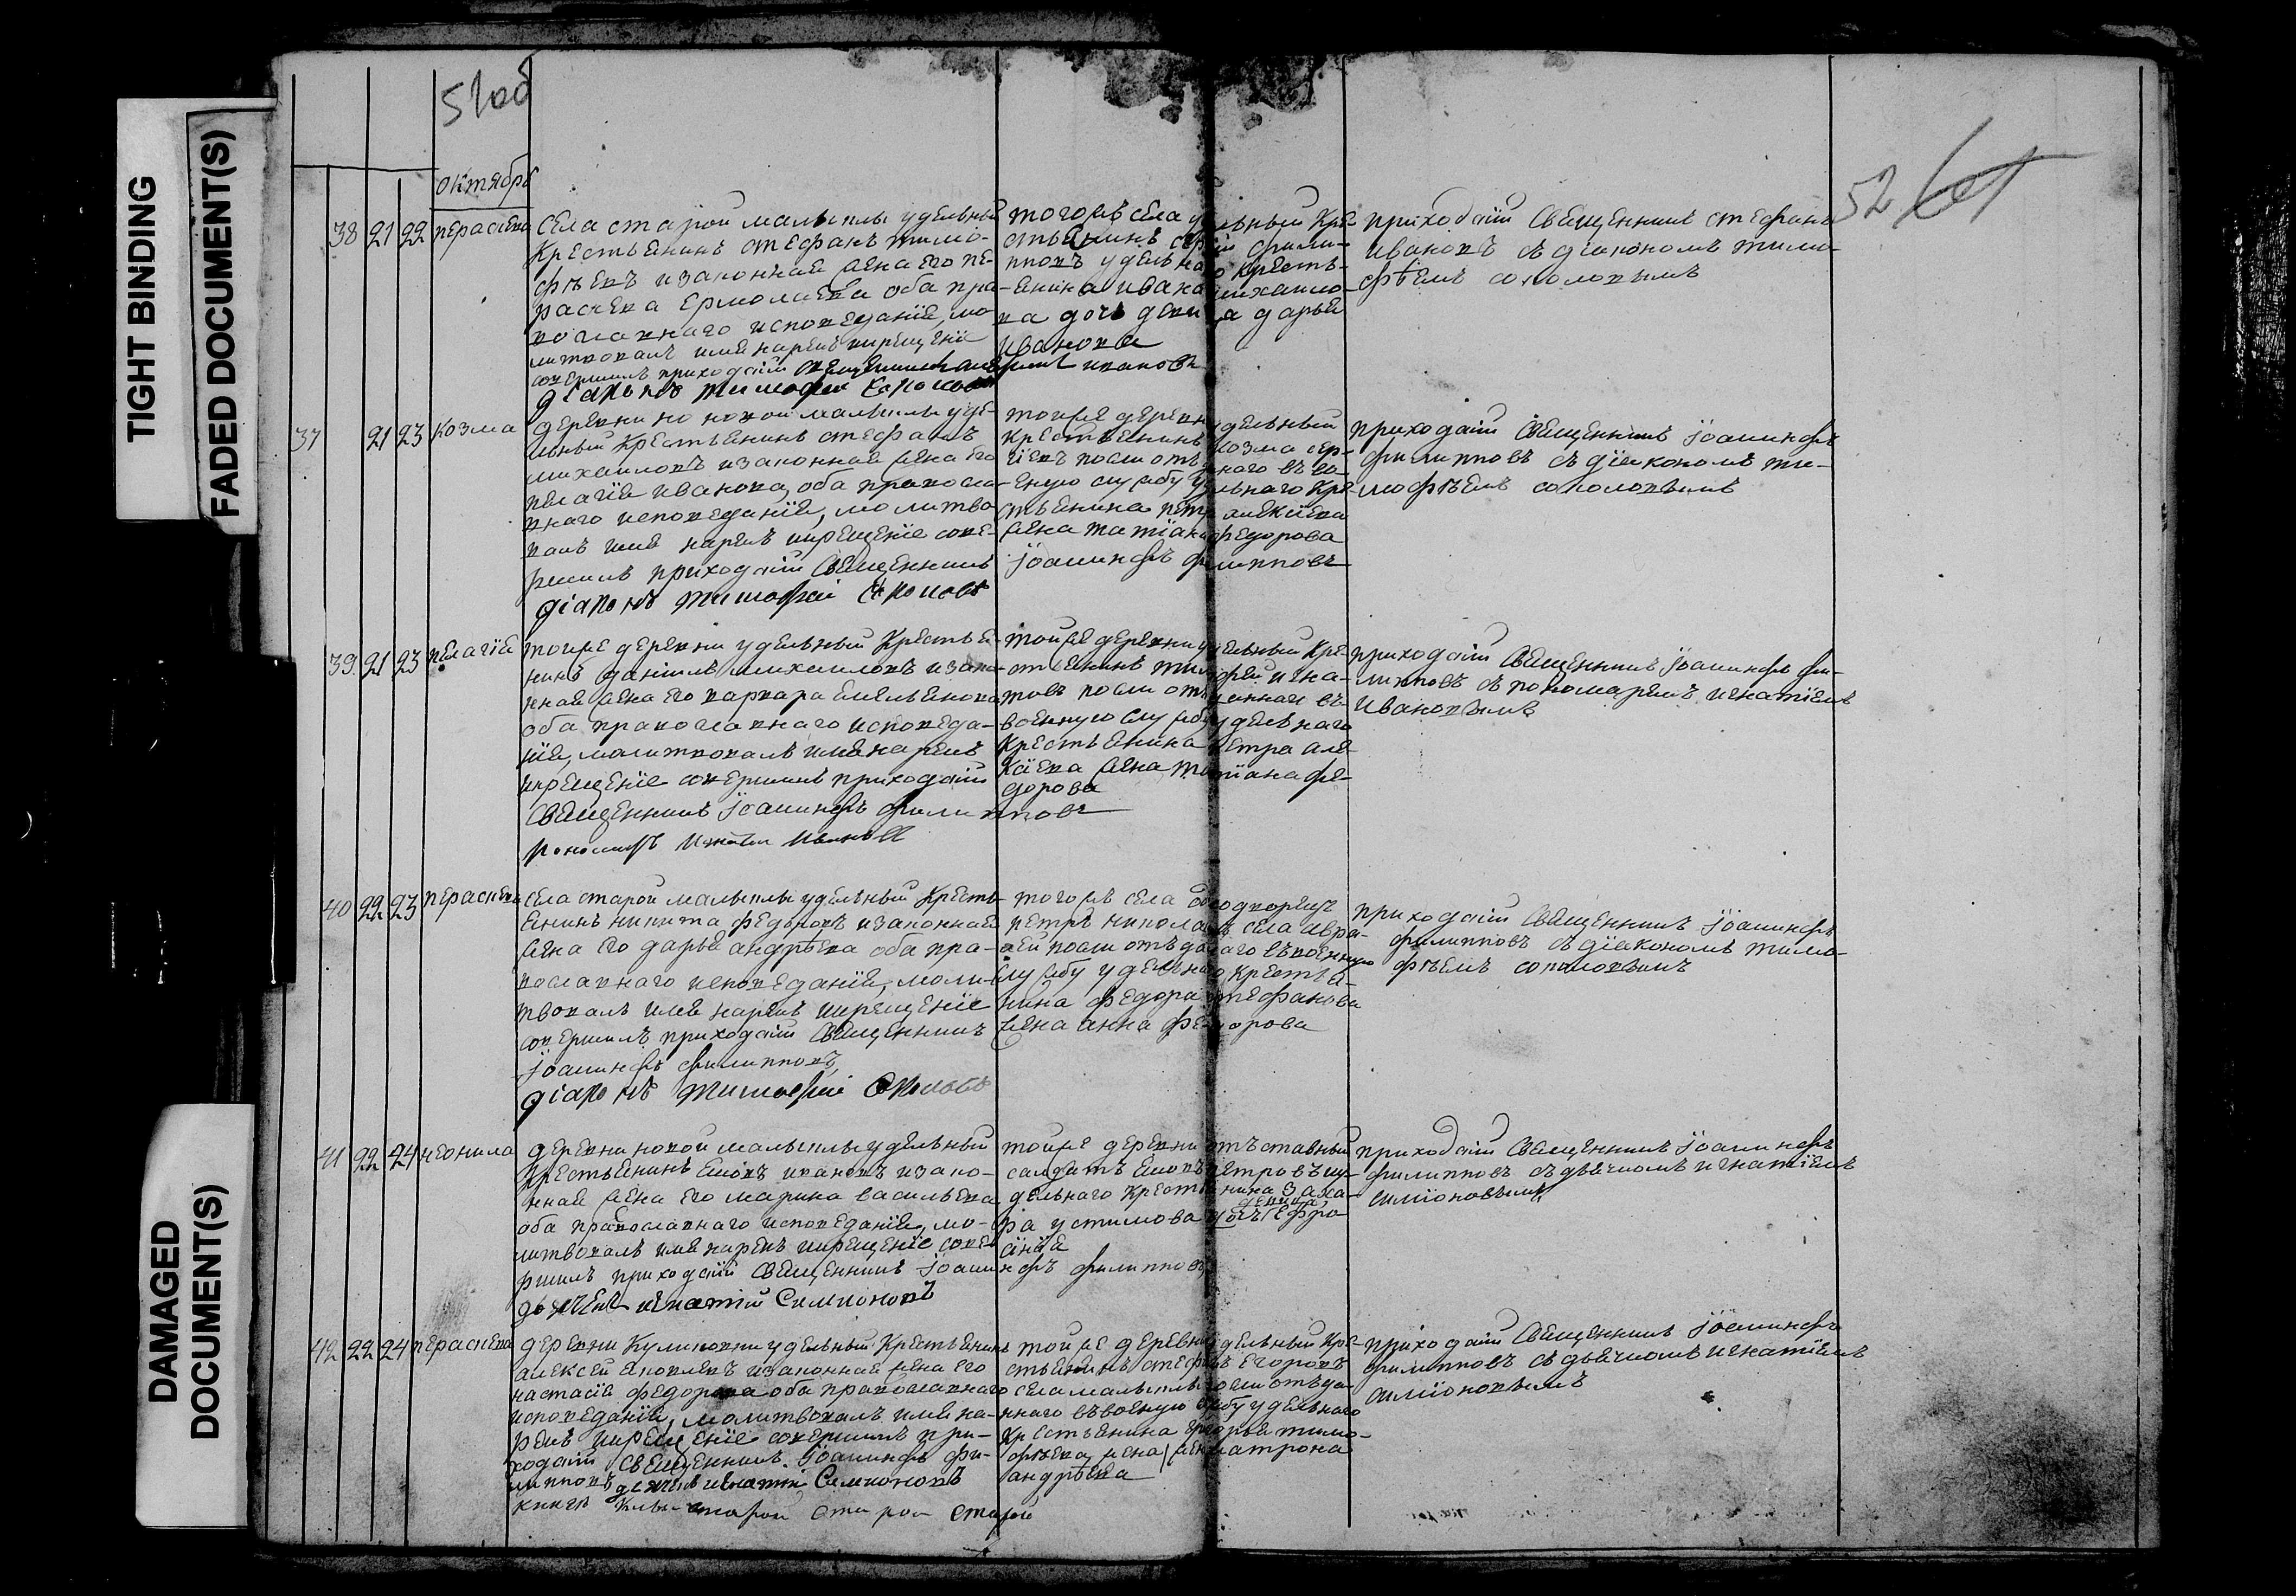 TIGHT BINDING
FADED DOCUMENT(S)
DAMAGED
DOCUMENT(S)
51об
52
октябрь
38 21 22 параскева
села старой малыклы удельный
крестьянинъ стефанъ тимо-
фѣевъ и законная жена его па-
раскева ермолаева оба пра-
вославнаго исповеданія, мо-
литвовалъ имя нарекъ и крещеніе
совершилъ приходскій священникъ стефанъ ивановъ
діаконъ тимофей соколовъ
тогожъ села удельный кре-
стьянинъ филип-
повъ удельнаго кресть-
янина ивана михаило-
ва дочь девица дарья
иванова
приходскій священникъ стефанъ
ивановъ съ діакономъ тимо-
фѣемъ соколовымъ
37 21 23 козма
деревни новой малыклы уде-
льный крестьянинъ стефанъ
михаиловъ и законная жена его
пелагія иванова, оба правосла-
внаго исповеданія, молитво-
валъ имя нарекъ и крещеніе сове-
ршилъ приходскій священникъ
іоакинфъ филипповъ
діаконъ тимофей соколовъ
тойже деревни удельный
крестьянинъ козма сер-
гіевъ посли отъданнаго въ во-
еную службу удельнаго кре-
стьянина петра алексіева
жена татіана федорова
приходскій священникъ іоакинфъ
филипповъ съ діакономъ ти-
мофѣемъ соколовымъ
39 21 23 пелагія
тойже деревни удельный крестья-
нинъ даніилъ михаиловъ и зако-
нная жена его варвара емельянова
оба православнаго исповеда-
нія, молитвовалъ имя нарекъ
и крещеніе совершилъ приходскій
священникъ іоакинфъ филипповъ
пономарь игнатій ивановъ
тойже деревни удельный кре-
стьянинъ тимофей игна-
товъ посли отъданнаго въ
военную службу удельнаго
крестьянина петра але-
ксіева жена татіана фе-
дорова
приходскій священникъ іоакинфъ фи-
липповъ съ пономаремъ игнатіемъ
ивановымъ
40 22 23 параскева
села старой малыклы удельный кресть-
янинъ никита федоровъ и законная
жена его дарья андрѣева оба пра-
вославнаго исповеданія, моли-
твовалъ имя нарекъ и крещеніе
совершилъ приходскій священникъ
іоакинфъ филипповъ,
діаконъ тимофей соколовъ
тогожъ села однодворецъ
петръ села
посли отъданаго въ военную
службу удельнаго крестья-
нина федора стефанова
жена анна федорова
приходскій священникъ іоакинфъ
филипповъ съ діакономъ тимо-
фѣемъ соколовымъ
41 22 24 неонила
деревни новой малыклы удельный
крестьянинъ ивановъ и зако-
нная жена его марина васильева
оба православнаго исповеданія, мо-
литвовалъ имя нарекъ и крещеніе сове-
ршилъ приходскій священникъ іоакинфъ филипповъ
дьячекъ игнатій симионовъ
тойже деревни отъставный
салдатъ петровъ и у-
дельнаго крестьянина заха-
ра устимова девица дочь ефро-
синія
приходскій священникъ іоакинфъ
филипповъ съ дьячкомъ игнатіемъ
симіоновымъ
42 22 24 параскева
деревни куликовки удельный крестьянинъ
алексей яковлевъ и законная жена его
настасія федорова оба православнаго
исповеданія, молитвовалъ имя на-
рекъ и крещеніе совершилъ при-
ходскій священникъ іоакинфъ фи-
липповъ дьячекъ игнатій симионовъ
тойже деревни удельный кре-
стьянинъ стефанъ егоровъ
села малыклы посли отъда-
ннаго въ военую службу удельнаго
крестьянина григорья тимо-
фѣева жена матрона
андрѣева
приходскій священникъ іоакинфъ
филипповъ съ дьячкомъ игнатіемъ
симіоновымъ
старой старой